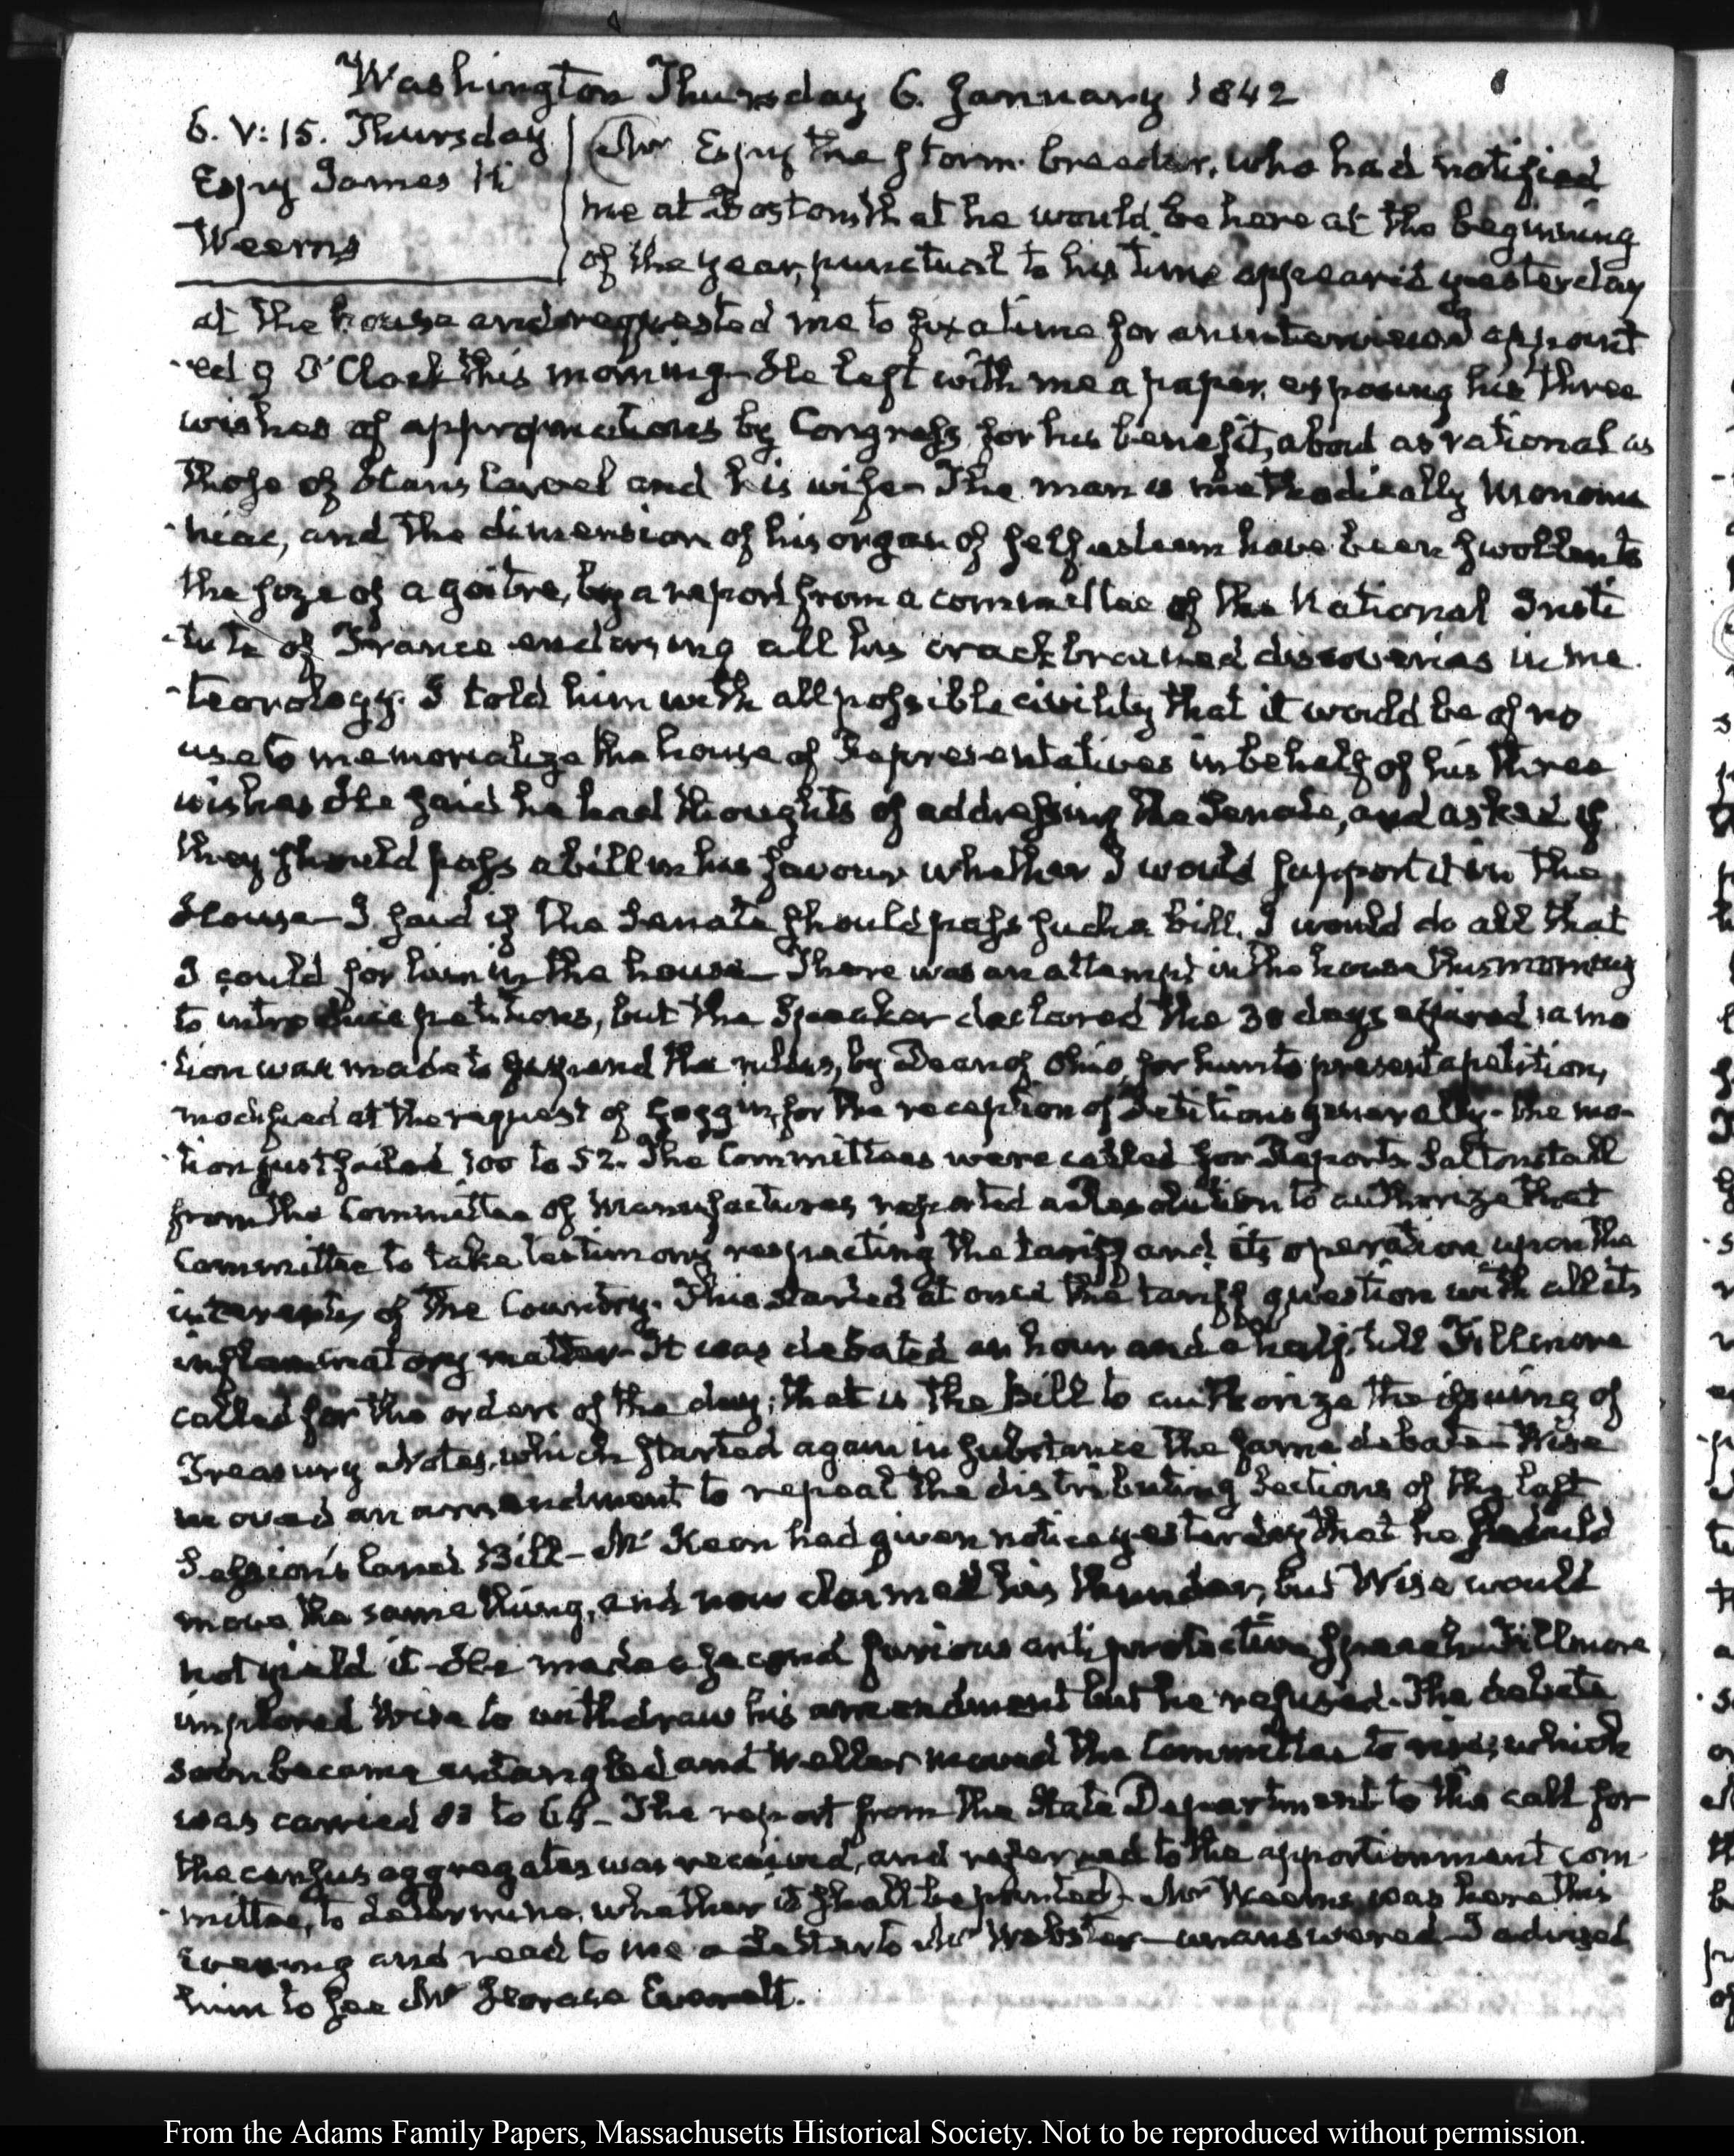 Washington Thursday 6. January 1842
6. V:15. Thursday
Espy James H
Weems
Mr Espy the storm breeder, who had notified
me at Boston that he would be here at the beginning
of the year, punctual to his time appeared yesterday
at the house and requested me to fix a time for an interview I appoint
-ed 9 O'Clock this morning. He left with me a paper, exposing his three
wishes of appropriations by Congress for his benefit, about as rational as
those of Hans Carvel and his wife. The man is methodically monoma
-niac, and the dimension of his organ of self esteem have been swollen to
the size of a goitre, by a report from a committee of the National Insti
-tute of France endorsing all his crack brained discoveries in me
-teorology. I told him with all possible civility that it would be of no
use to memorialize the house of Representatives in behalf of his three
wishes. He said he had thoughts of addressing the Senate, and asked if
they should pass a bill in his favour whether I would support it in the
House - I said if the Senate should pass such a bill, I would do all that
I could for him in the house - There was an attempt in the house this morning
to introduce petitions, but the Speaker declared the 30 days expired; a mo
-tion was made to suspend the rules, by Dean of Ohio, for him to present a petition,
modified at the request of Goggin, for the reception of Petitions generally - the mo-
-tion just failed 100 to 52. The Committees were called for Reports Saltonstall
from the Committee of Manufactures reported a Resolution to authorize that
Committee to take testimony respecting the tariff and its operation upon the
interests of the Country. This started at once the tariff question with all its
inflammatory matter - It was debated an hour and a half, till Fillmore
called for the orders of the day; that is the Bill to authorize the issuing of
Treasury Notes, which started again in substance the same debate - Wise
moved an amendment to repeal the distributing Sections of the last
Session's land Bill - McKeon had given notice yesterday that he should
move the same thing, and now claimed his thunder, but Wise would
not yield it - He made a second furious anti protective speech - Fillmore
implored Wise to withdraw his amendment but he refused. The debate
soon became entangled and Weller moved the Committee to rise; which
was carried to - The report from the State Department to the call for
the census aggregates was received, and referred to the apportionment com
-mittee, to determine, whether it shall be printed - Mr Weems was here this
Evening and read to me a Letter to Mr Webster - unanswered - I advised
him to see Mr Horace Everett.
From the Adams Family Papers, Massachusetts Historical Society. Not to be reproduced without permission.